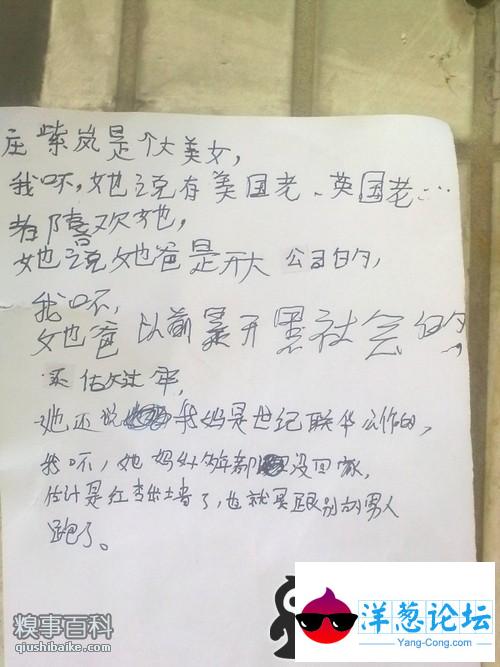 庄紫岚是个大美女,
我呸,她说有美国老、英国老…
都喜欢她,
她说她爸是开大公司的,
我呸,
她爸以前是开黑社会的
还估过牢,
她还说我妈是世纪联华工作的,
我呸,她妈好多年都没回家,
估计是红杏出墙了,也就是跟别的男人
跑了。
糗事百科
qiushibaike.com
洋葱论坛
Yang-Cong.com